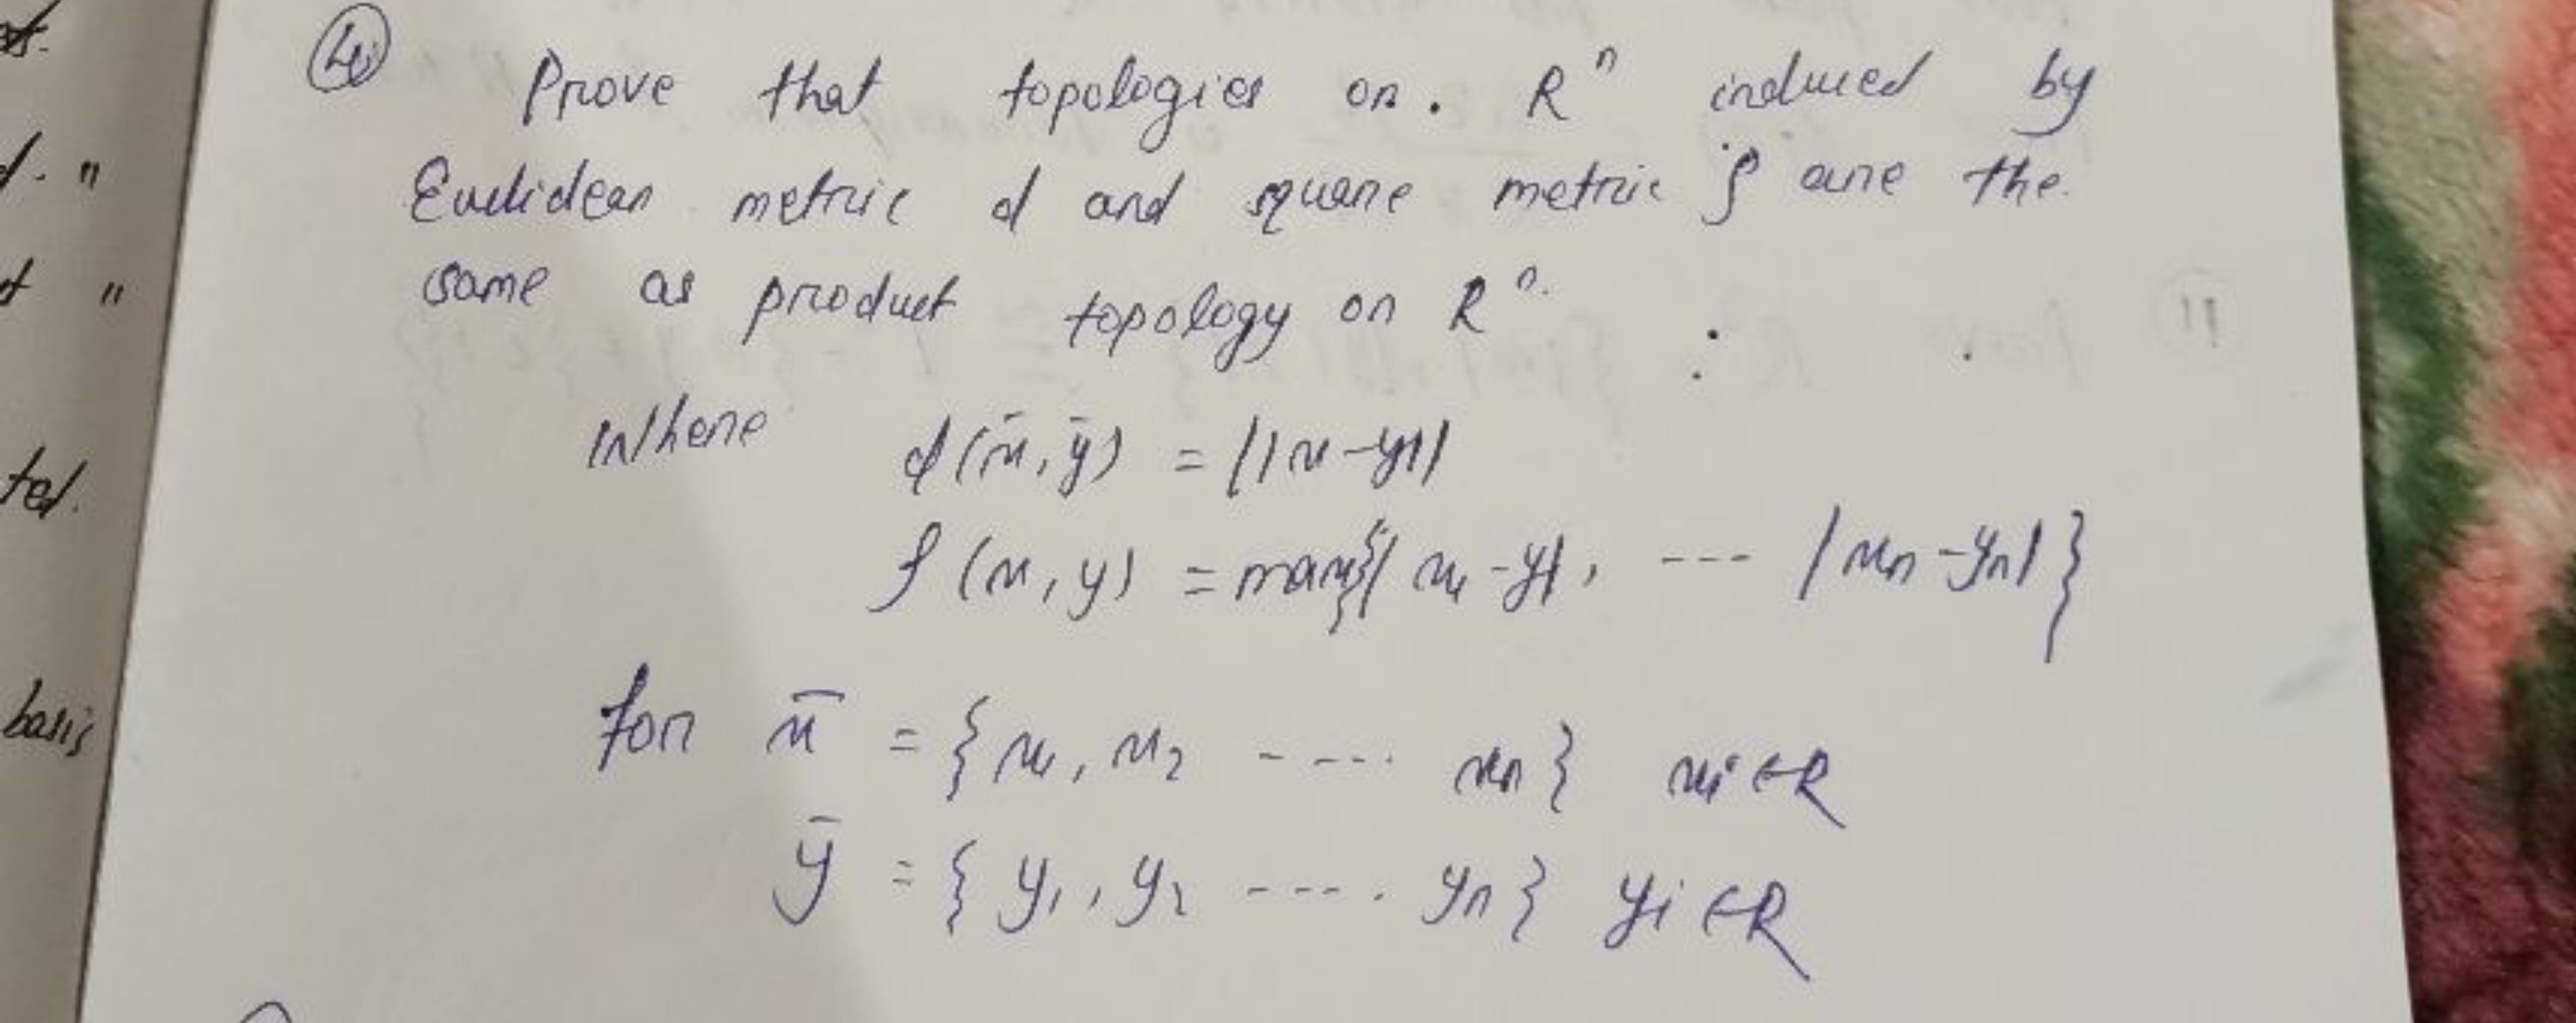 ④ Prove that topologies on. Rⁿ induced by
Euclidean metric d and square metric ρ are the
same as product topology on Rⁿ.
Where d(x̄, ȳ) = ||x-y||
ρ(x, y) = max{|x₁-y|, --- |xₙ-yₙ|}
for x̄ = {x₁, x₂ ----- xₙ} xᵢ ∈ R
ȳ = {y₁, y₂ ----. yₙ} yᵢ ∈ R
ted.
basis